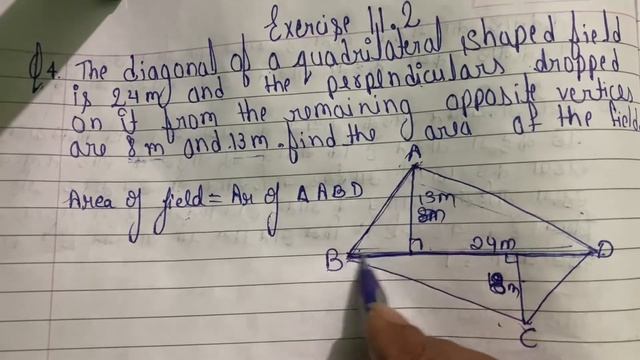 Exercise 11.2
Q4. The diagonal of a quadrilateral shaped field
is 24m and the perpendiculars dropped
on it from the remaining opposite vertices
are 8m and 13m. find the area of the field
Area of field = Ar of △ ABD
A
13m
24m
B
D
8m
C